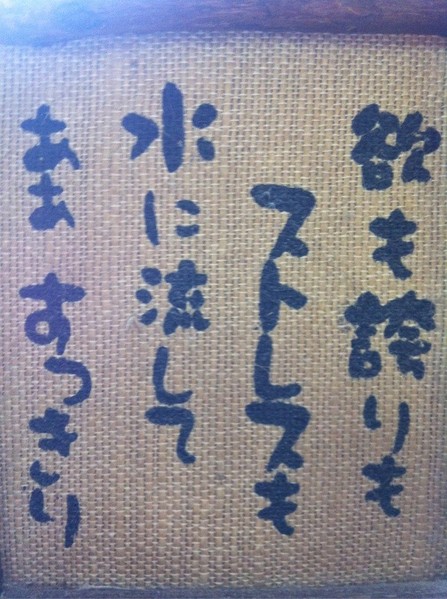 欲も誇りも
ストレスも
水に流して
ああ すっきり